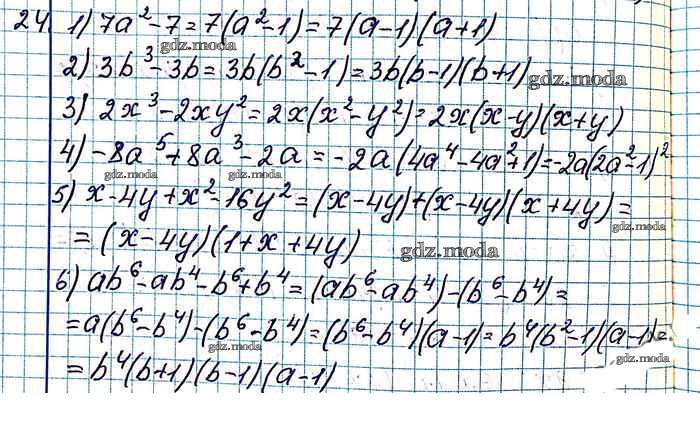 24. 1) 7a² - 7 = 7(a² - 1) = 7(a - 1)(a + 1)
gdz.moda
2) 3b³ - 3b = 3b(b² - 1) = 3b(b - 1)(b + 1) gdz.moda
3) 2x³ - 2xy² = 2x(x² - y²) = 2x(x - y)(x + y)
4) -8a⁵ + 8a³ - 2a = -2a(4a⁴ - 4a² + 1) = -2a(2a² - 1)²
gdz.moda gdz.moda gdz.moda
5) x - 4y + x² - 16y² = (x - 4y) + (x - 4y)(x + 4y) =
gdz.moda
= (x - 4y)(1 + x + 4y) gdz.moda
6) ab⁶ - ab⁴ - b⁶ + b⁴ = (ab⁶ - ab⁴) - (b⁶ - b⁴) =
= a(b⁶ - b⁴) - (b⁶ - b⁴) = (b⁶ - b⁴)(a - 1) = b⁴(b² - 1)(a - 1) =
gdz.moda gdz.moda
= b⁴(b + 1)(b - 1)(a - 1)